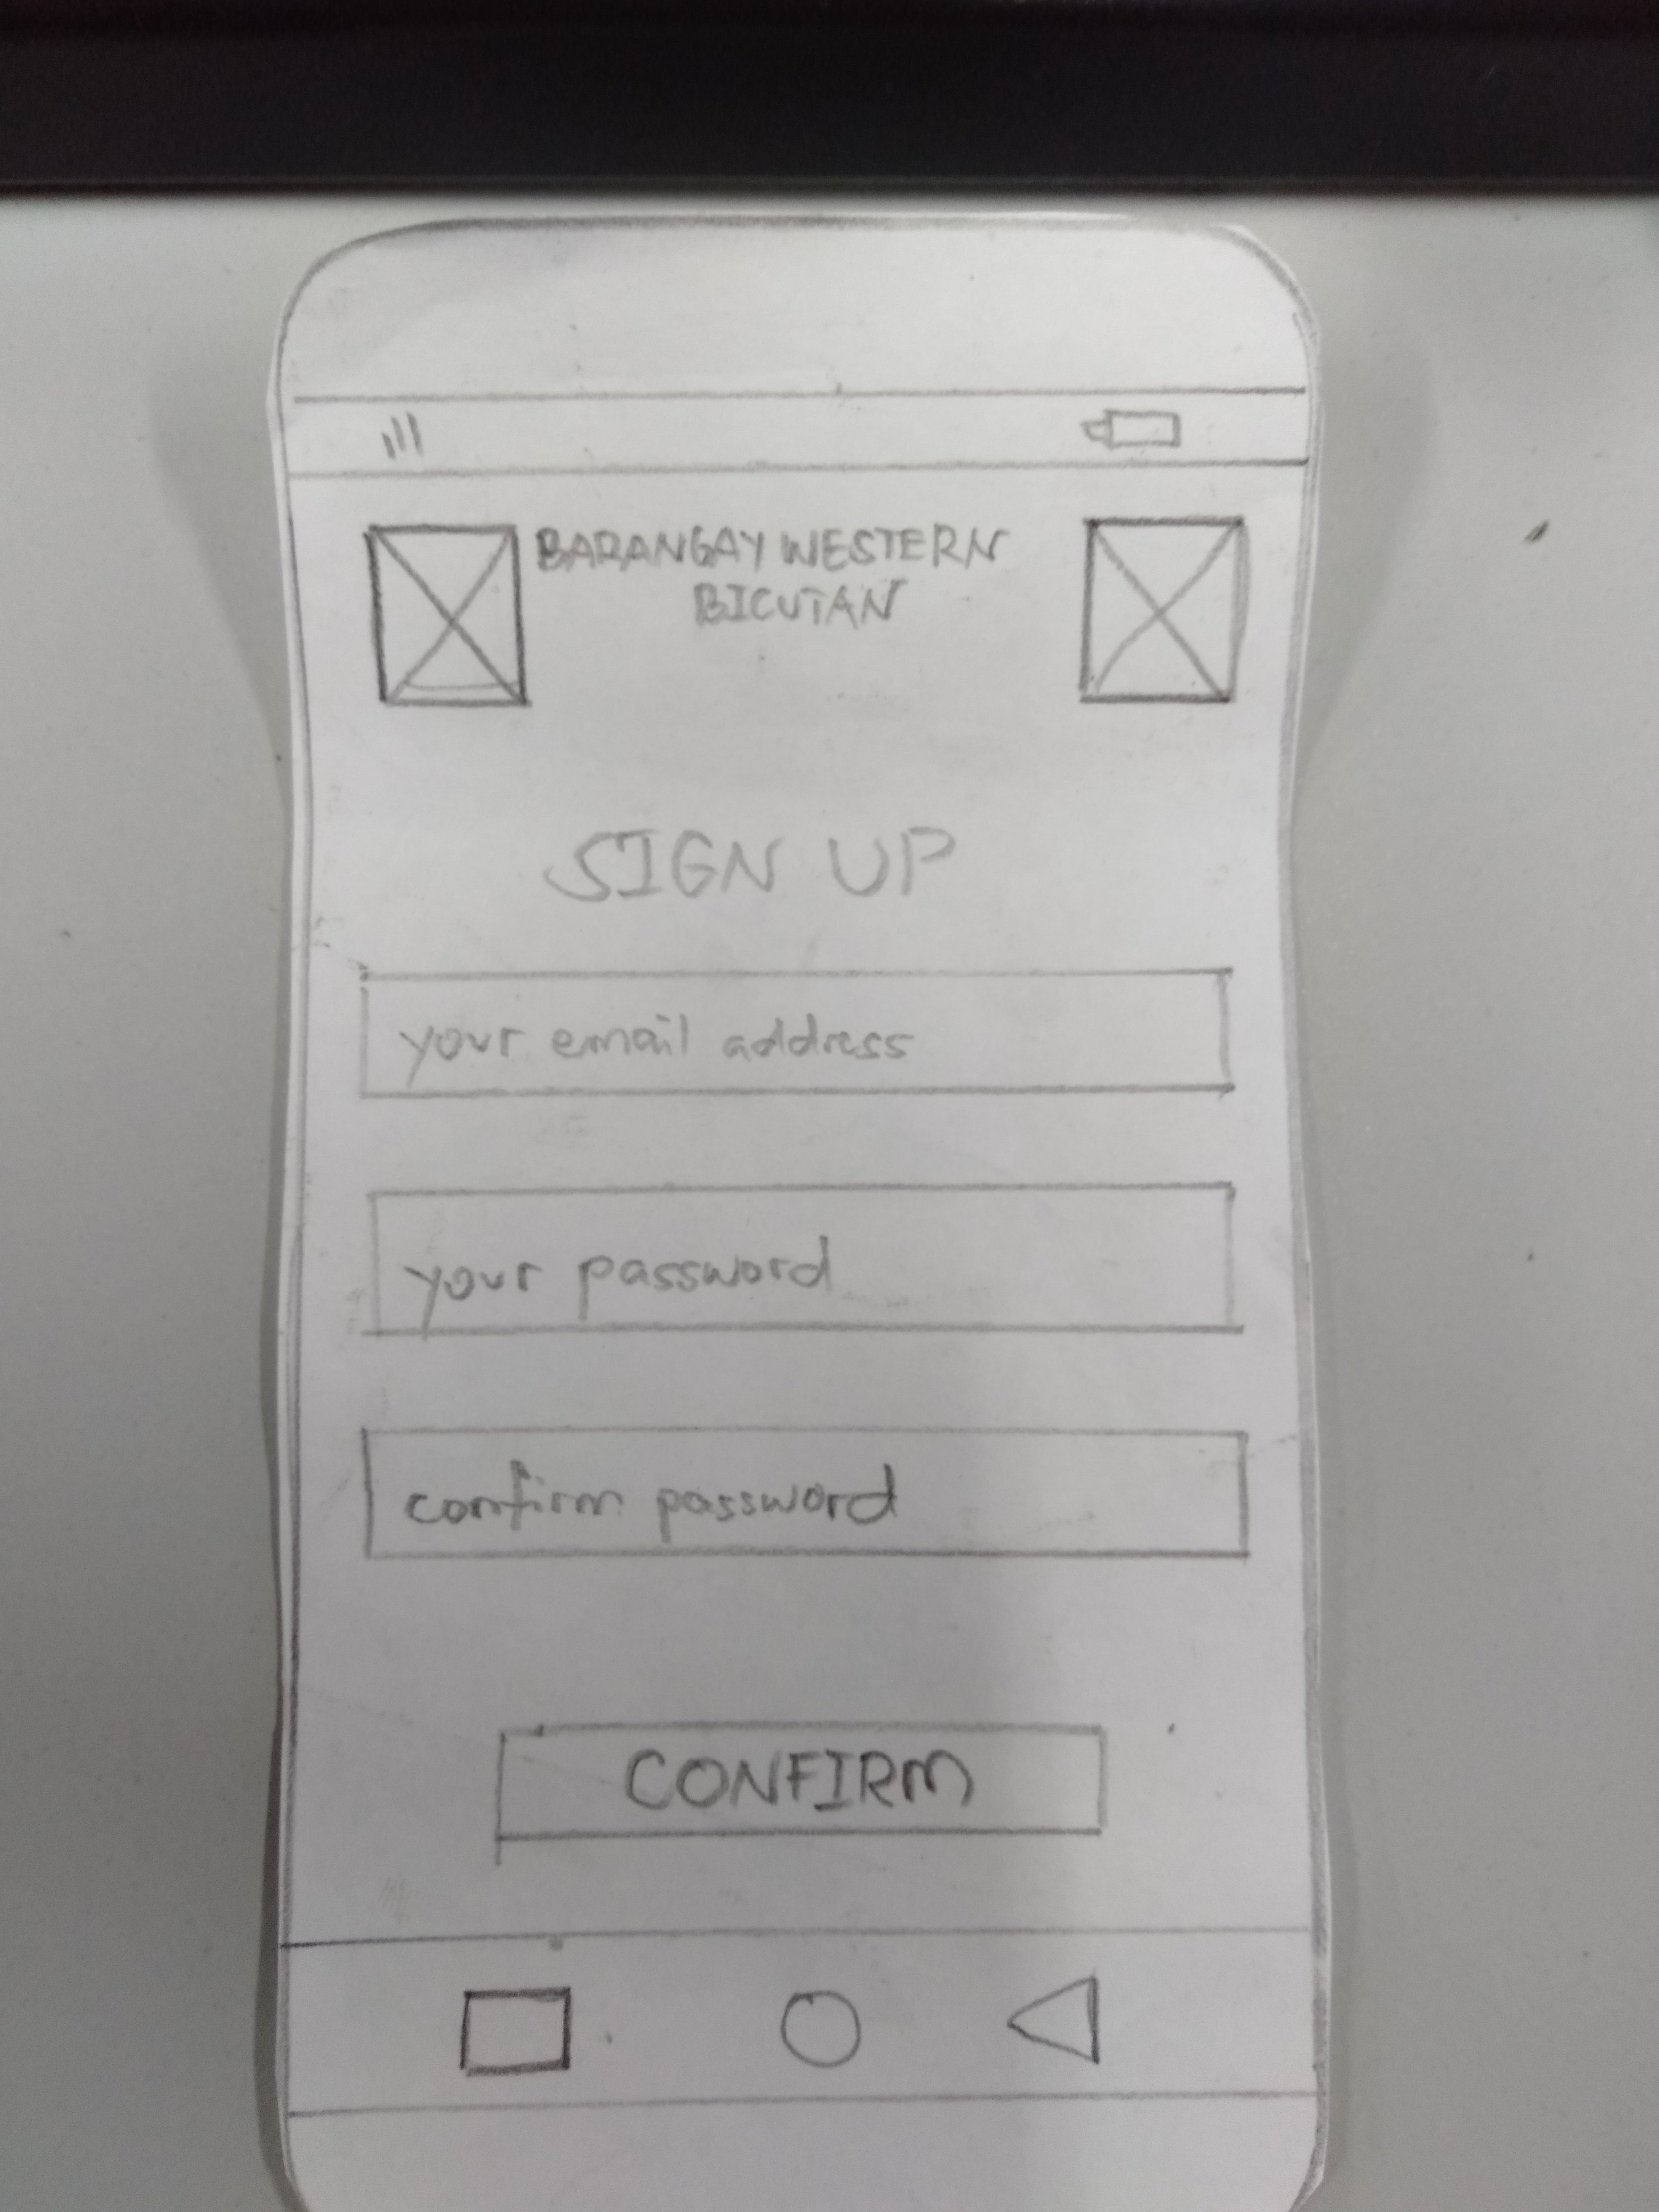 BARANGAY WESTERN
BICUTAN
SIGN UP
your email address
your password
confirm password
CONFIRM